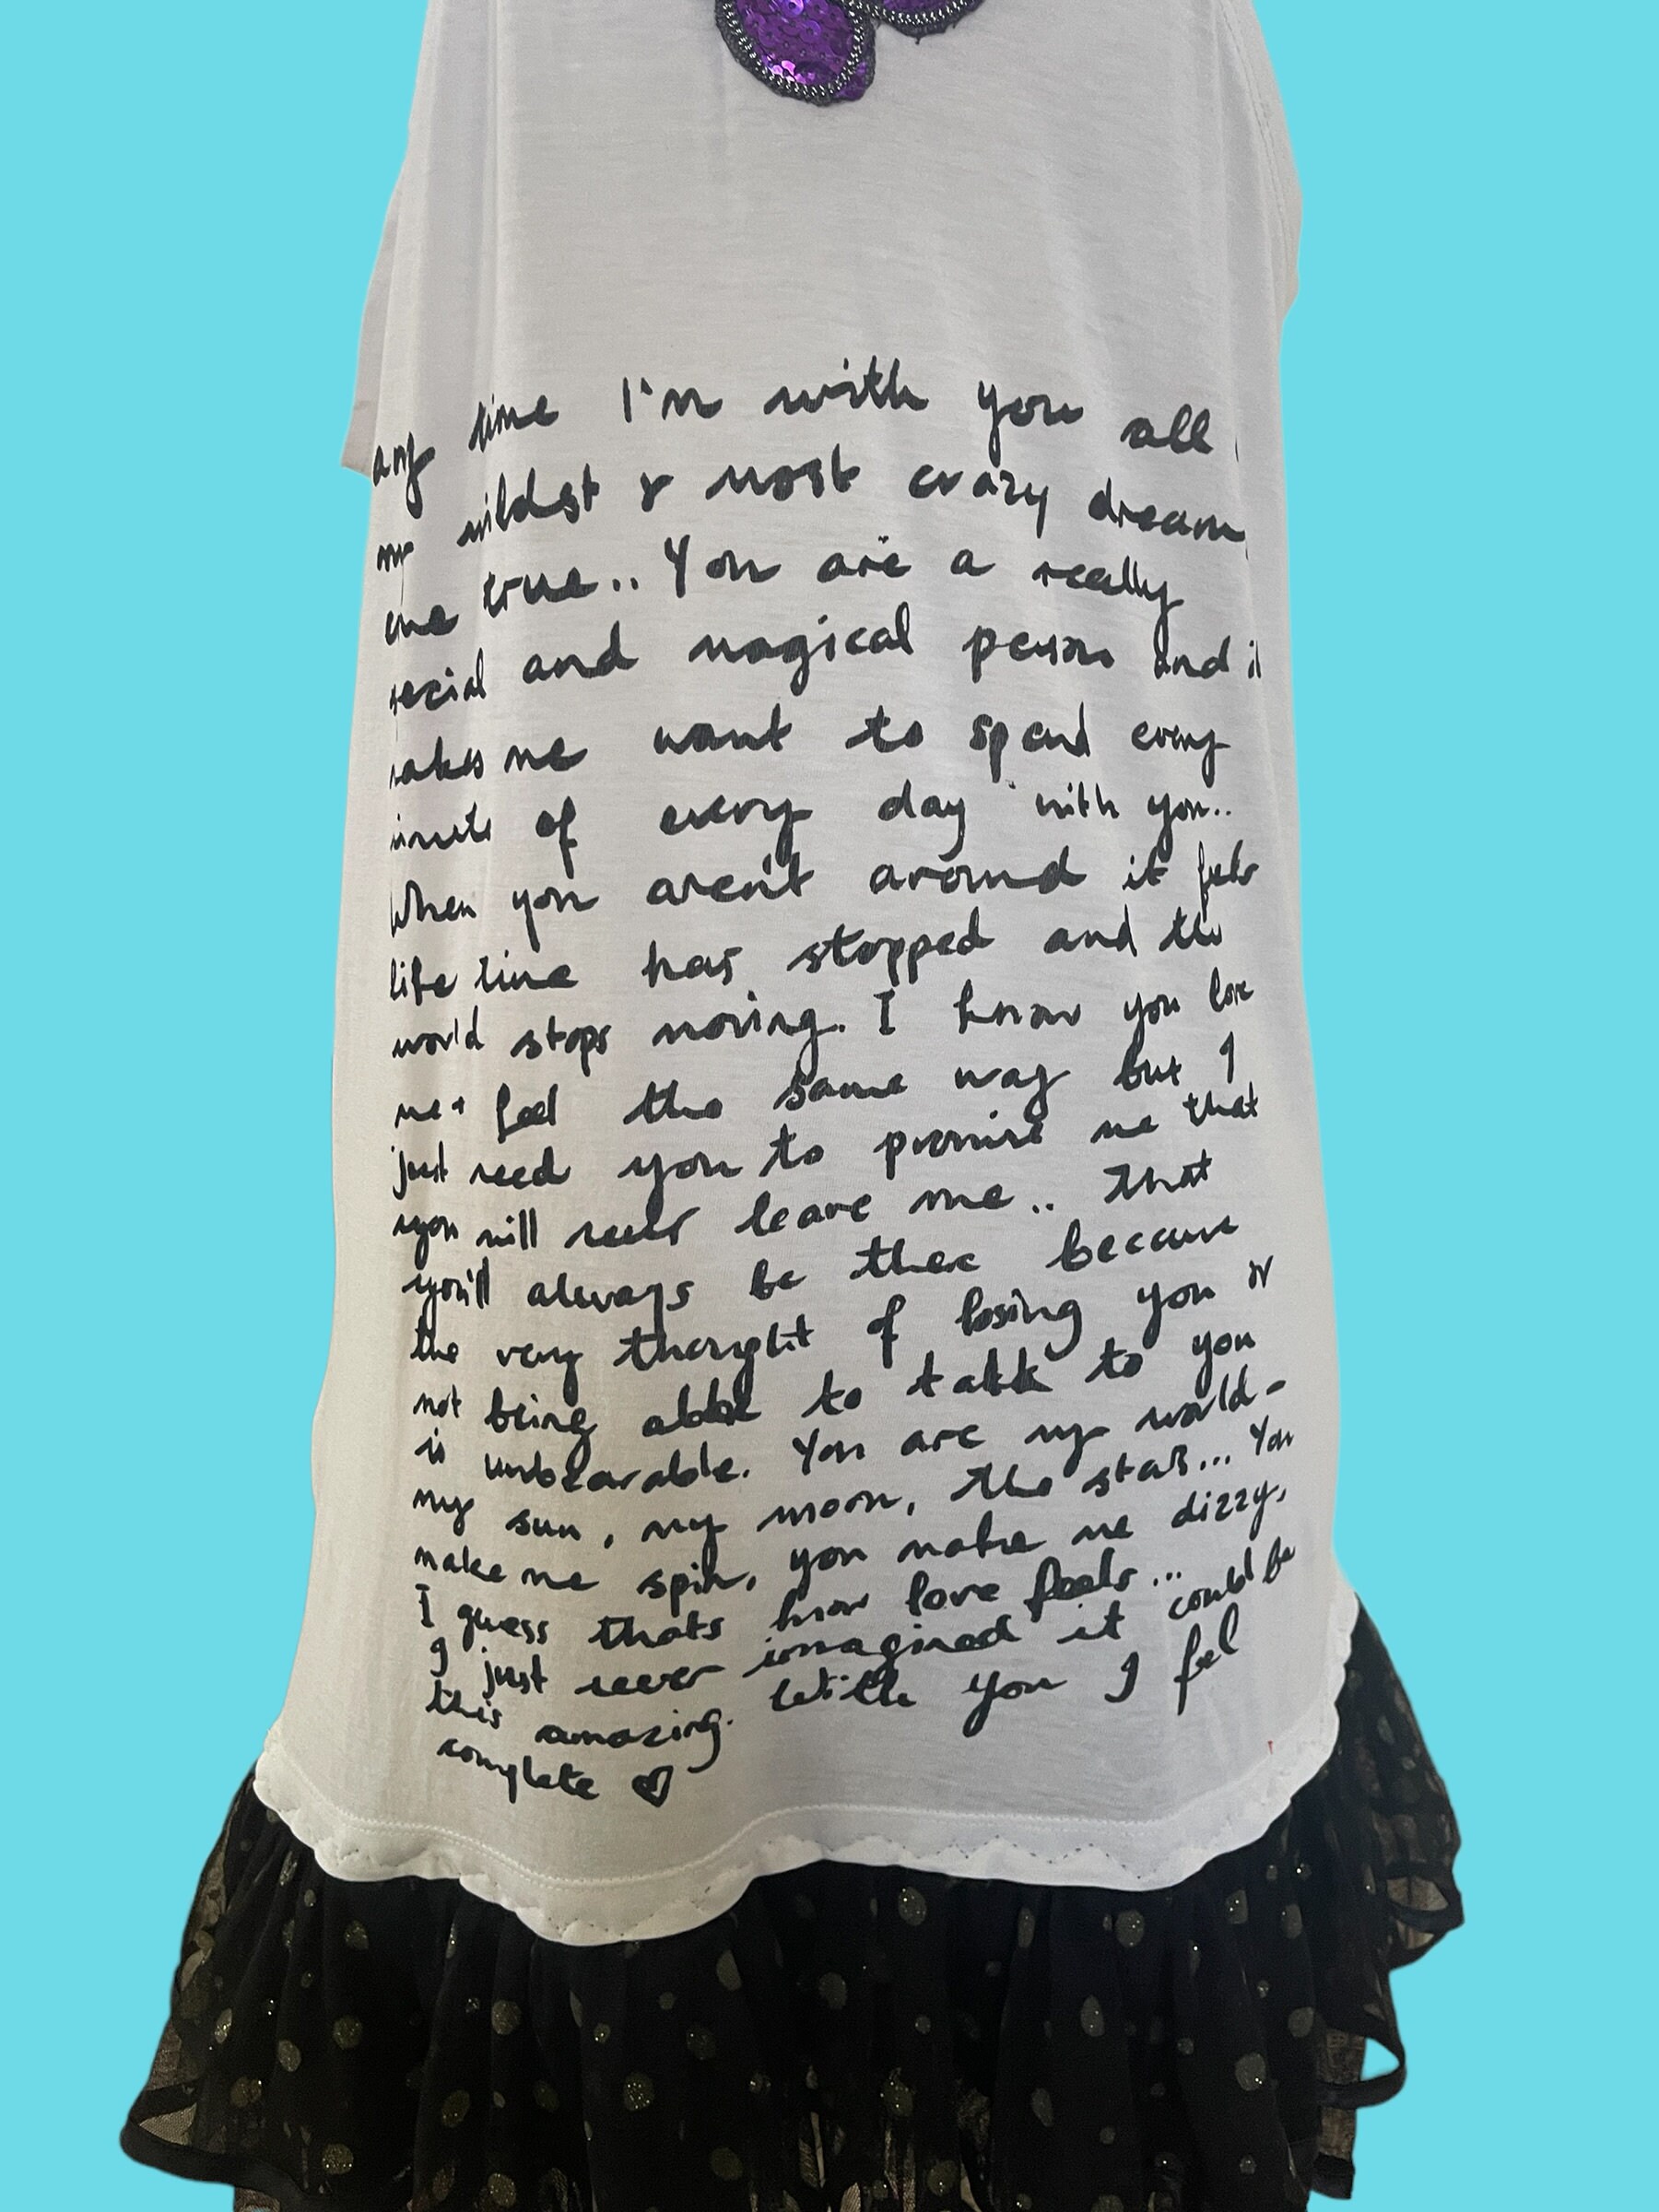 any time I'm with you all
my wildest & most crazy dream
ome true.. You are a really
pecial and magical person and i
makes me want to spend every
minute of every day with you..
When you aren't around it feels
like time has stopped and the
world stops moving. I know you love
me + feel the same way but I
just need you to promise me that
you will never leave me.. that
you'll always be there because
the very thought of losing you or
not being able to talk to you
is unbearable. You are my world -
my sun, my moon, the stars... You
make me spin, you make me dizzy,
I guess thats how love feels...
I just never imagined it could be
this amazing. With you I feel
complete ♡